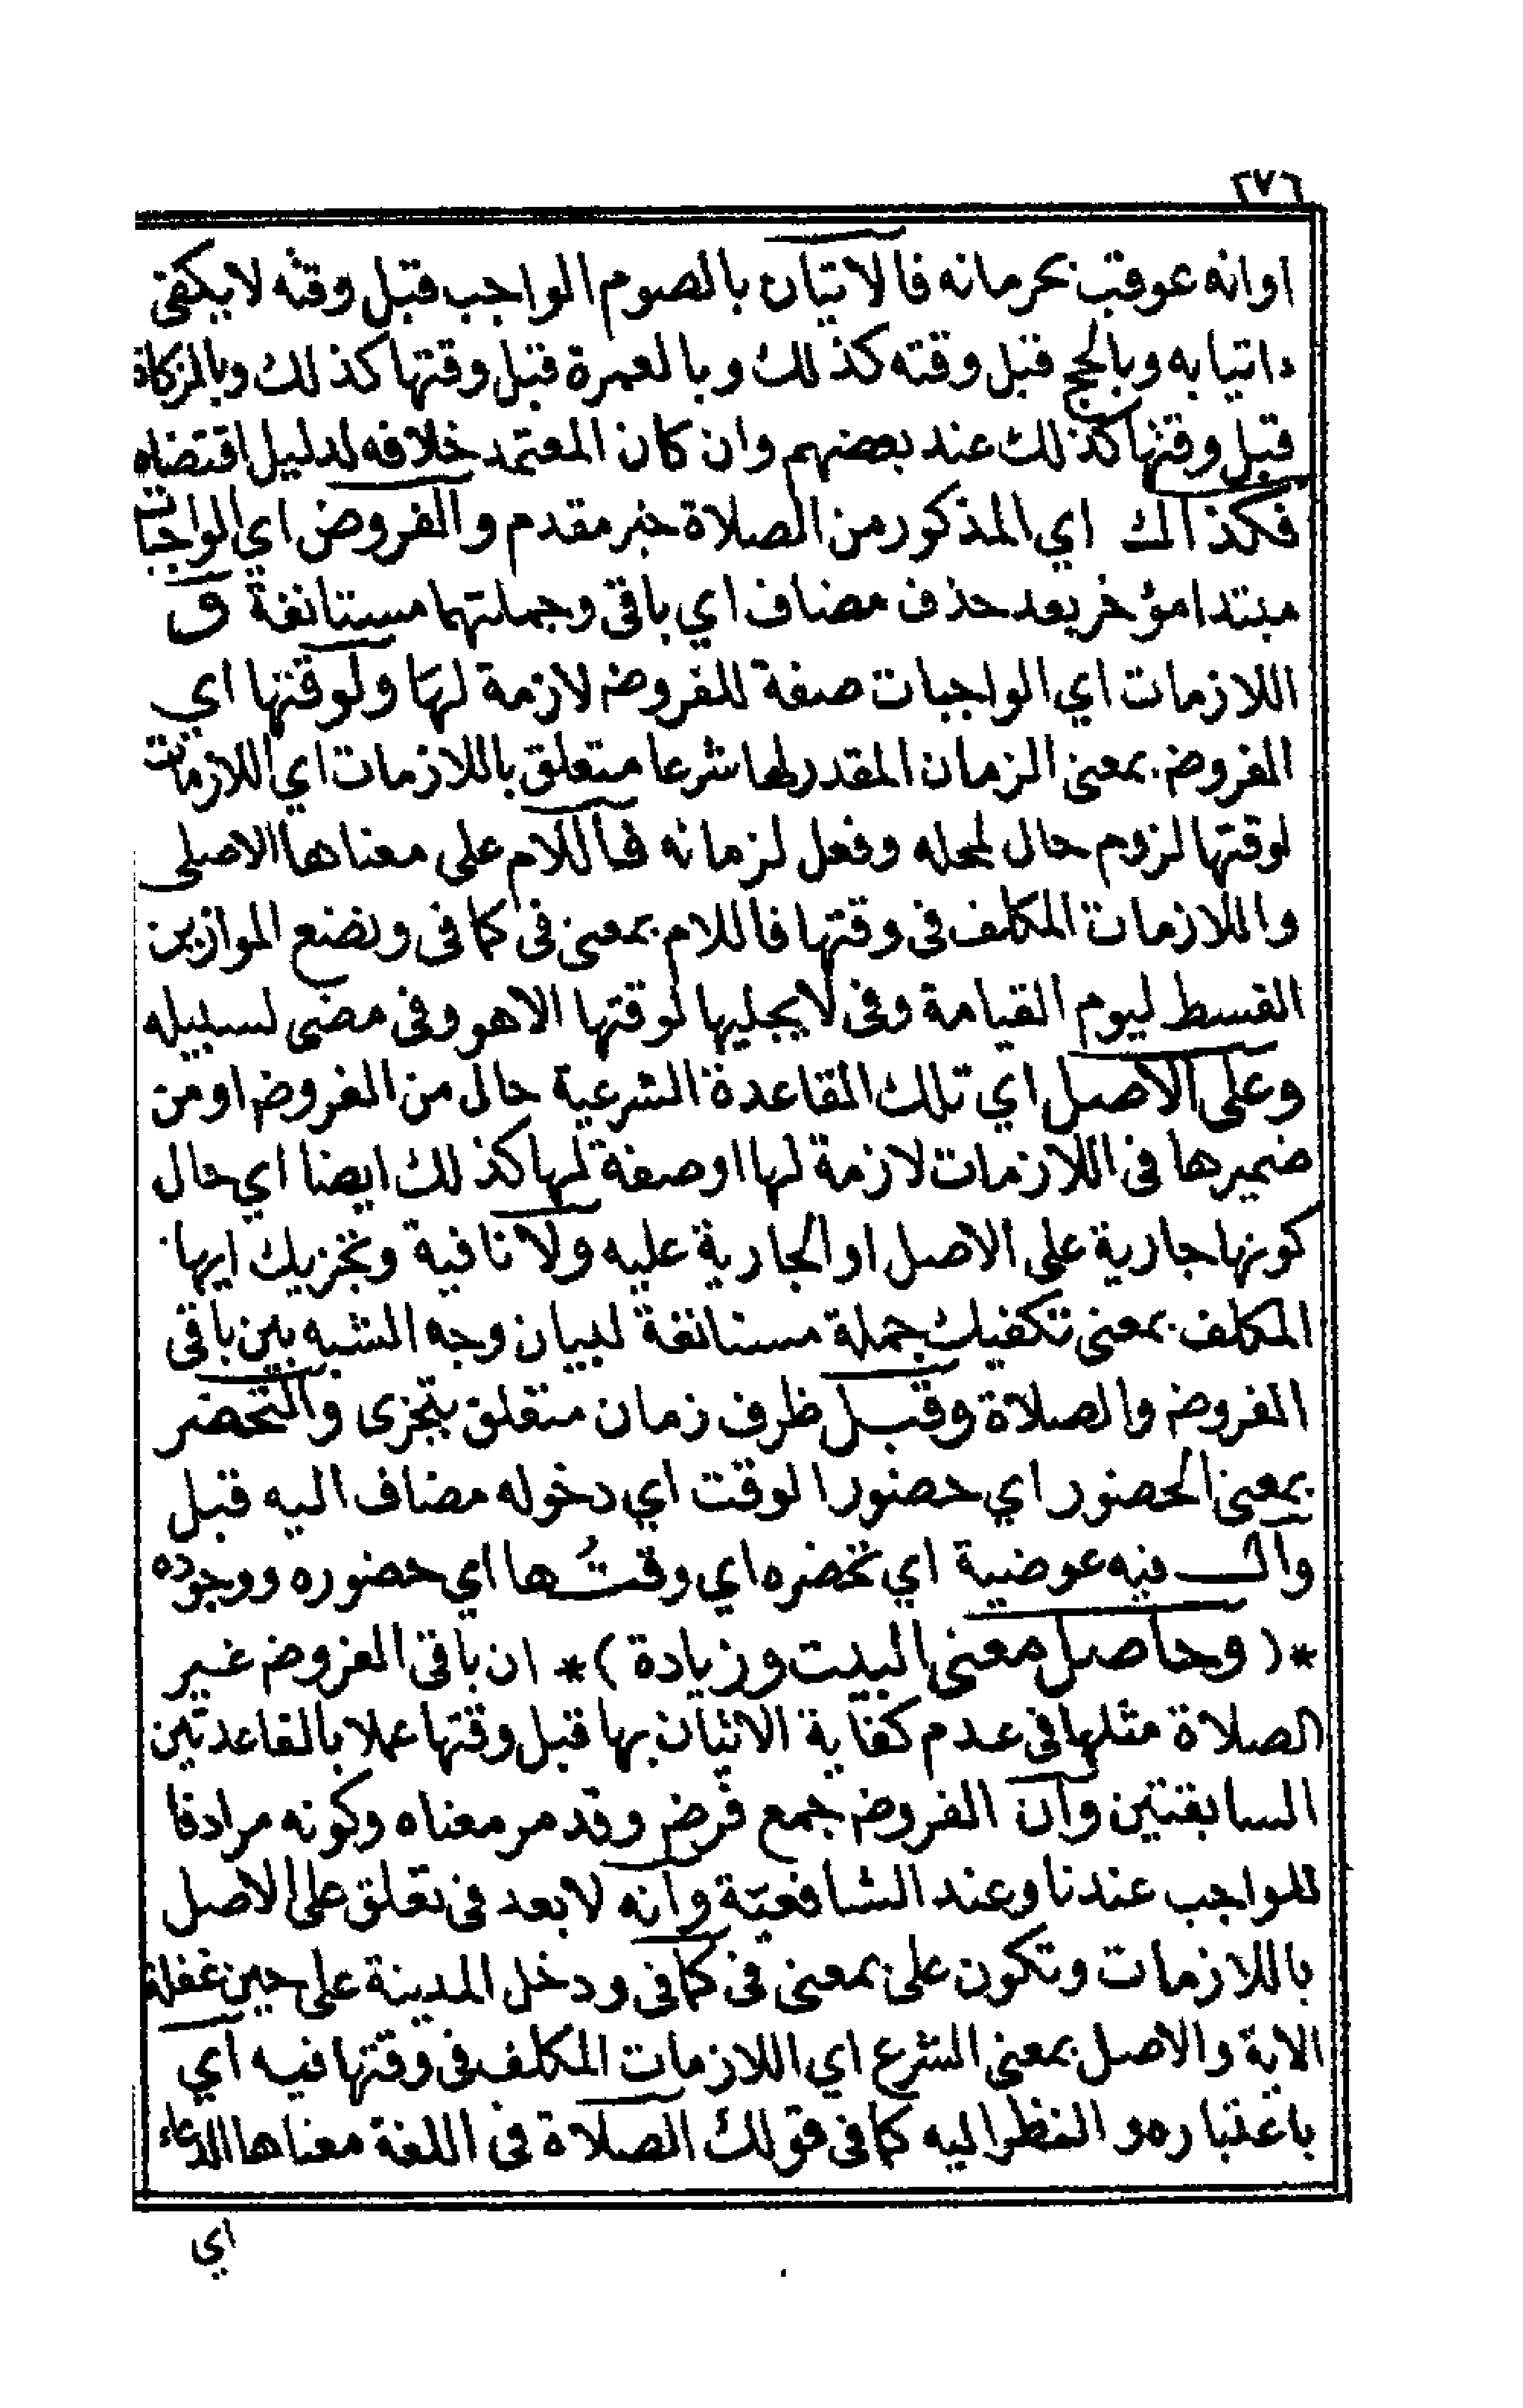 ٢٧٦
اوانه عوقب بحرمانه فالاتيان بالصوم الواجب قبل وقته لا يكفى
داتيا به وبالحج قبل وقته كذلك وبالعمرة قبل وقتها كذلك وبالزكاة
قبل وقتها كذلك عند بعضهم وان كان المعتمد خلافه لدليل اقتضاه
فكذاك اي المذكور من الصلاة خبر مقدم والفروض اي الواجبات
مبتدا مؤخر بعد حذف مضاف اي باقى وجملتهما مستانفة و
اللازمات اي الواجبات صفة للفروض لازمة لها ولوقتها اي
الفروض بمعنى الزمان المقدر لها شرعا متعلق باللازمات اي اللازمات
لوقتها لزوم حال لمحله وفعل لزمانه فاللام على معناها الاصلى
واللازمات المكلف فى وقتها فاللام بمعنى فى كما فى ونضع الموازين
القسط ليوم القيامة وفى لا يجليها لوقتها الا هو وفى مضى لسبيله
وعلى الاصل اي تلك القاعدة الشرعية حال من الفروض او من
ضميرها فى اللازمات لازمة لها او صفة لها كذلك ايضا اي حال
كونها جارية على الاصل او الجارية عليه ولا نافية وتجزيك ايها
المكلف بمعنى تكفيك جملة مستانفة لبيان وجه الشبه بين باقى
الفروض والصلاة وقبل ظرف زمان متعلق بتجزى والتحضر
بمعنى الحضور اي حضور الوقت اي دخوله مضاف اليه قبل
وال فيه عوضية اي تحضره اي وقتُها اي حضوره ووجوده
*( وحاصل معنى البيت وزيادة )* ان باقى الفروض غير
الصلاة مثلها فى عدم كفاية الاتيان بها قبل وقتها عملا بالقاعدتين
السابقتين وان الفروض جمع فرض وقد مر معناه وكونه مرادفا
للواجب عندنا وعند الشافعيّة وانه لا بعد فى تعلق على الاصل
باللازمات وتكون على بمعنى فى كما فى ودخل المدينة على حين غفلة
الاية والاصل بمعنى الشرع اي اللازمات المكلف فى وقتها فيه اي
باعتباره والنظر اليه كما فى قولك الصلاة فى اللغة معناها الدعاء
اي